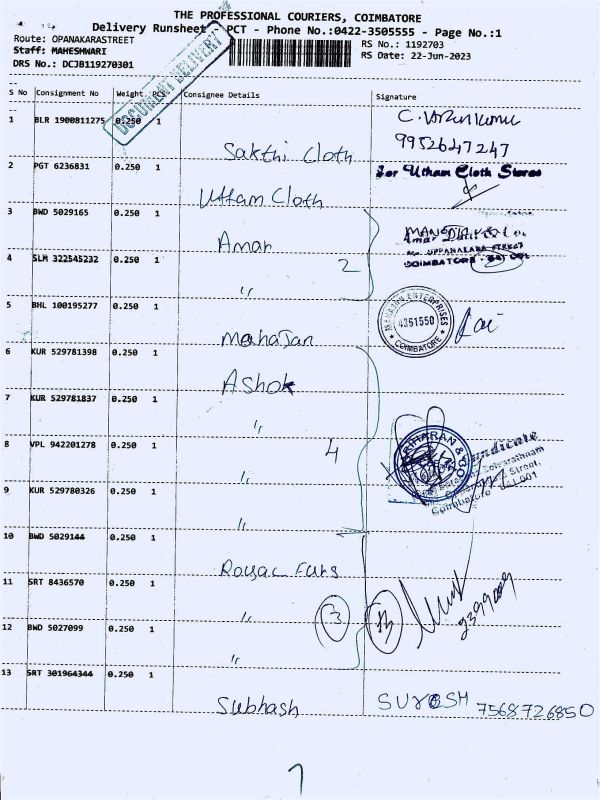 THE PROFESSIONAL COURIERS, COIMBATORE
Delivery Runsheet - PCT - Phone No.:0422-3505555 - Page No.:1
Route: OPANAKARASTREET
RS No.: 1192703
Staff: MAHESHWARI
RS Date: 22-Jun-2023
DRS No.: DCJB119270301
DOCUMENT DELIVERY
S No Consignment No Weight PCS Consignee Details Signature
1 BLR 1900811275 0.250 1 Sakthi Cloth
9952647247
2 PGT 6236831 0.250 1 Uttam Cloth
for Utham Cloth Stores
3 BWD 5029165 0.250 1 Amar
4 SLM 322545232 0.250 1 "
2
COIMBATORE
5 BHL 100195277 0.250 1 Mahajan
ENTERPRISES
4351550
COIMBATORE
6 KUR 529781398 0.250 1 Ashok
7 KUR 529781837 0.250 1 "
8 VPL 942201278 0.250 1 "
4
9 KUR 529780326 0.250 1 "
HARIHARAN & CO
Syndicate
Street,
Coimbatore
10 BWD 5029144 0.250 1 Royal Furs
11 SRT 8436570 0.250 1 "
3
12 BWD 5027099 0.250 1 "
13 SRT 301964344 0.250 1 Subhash
SURESH 7568726850
7